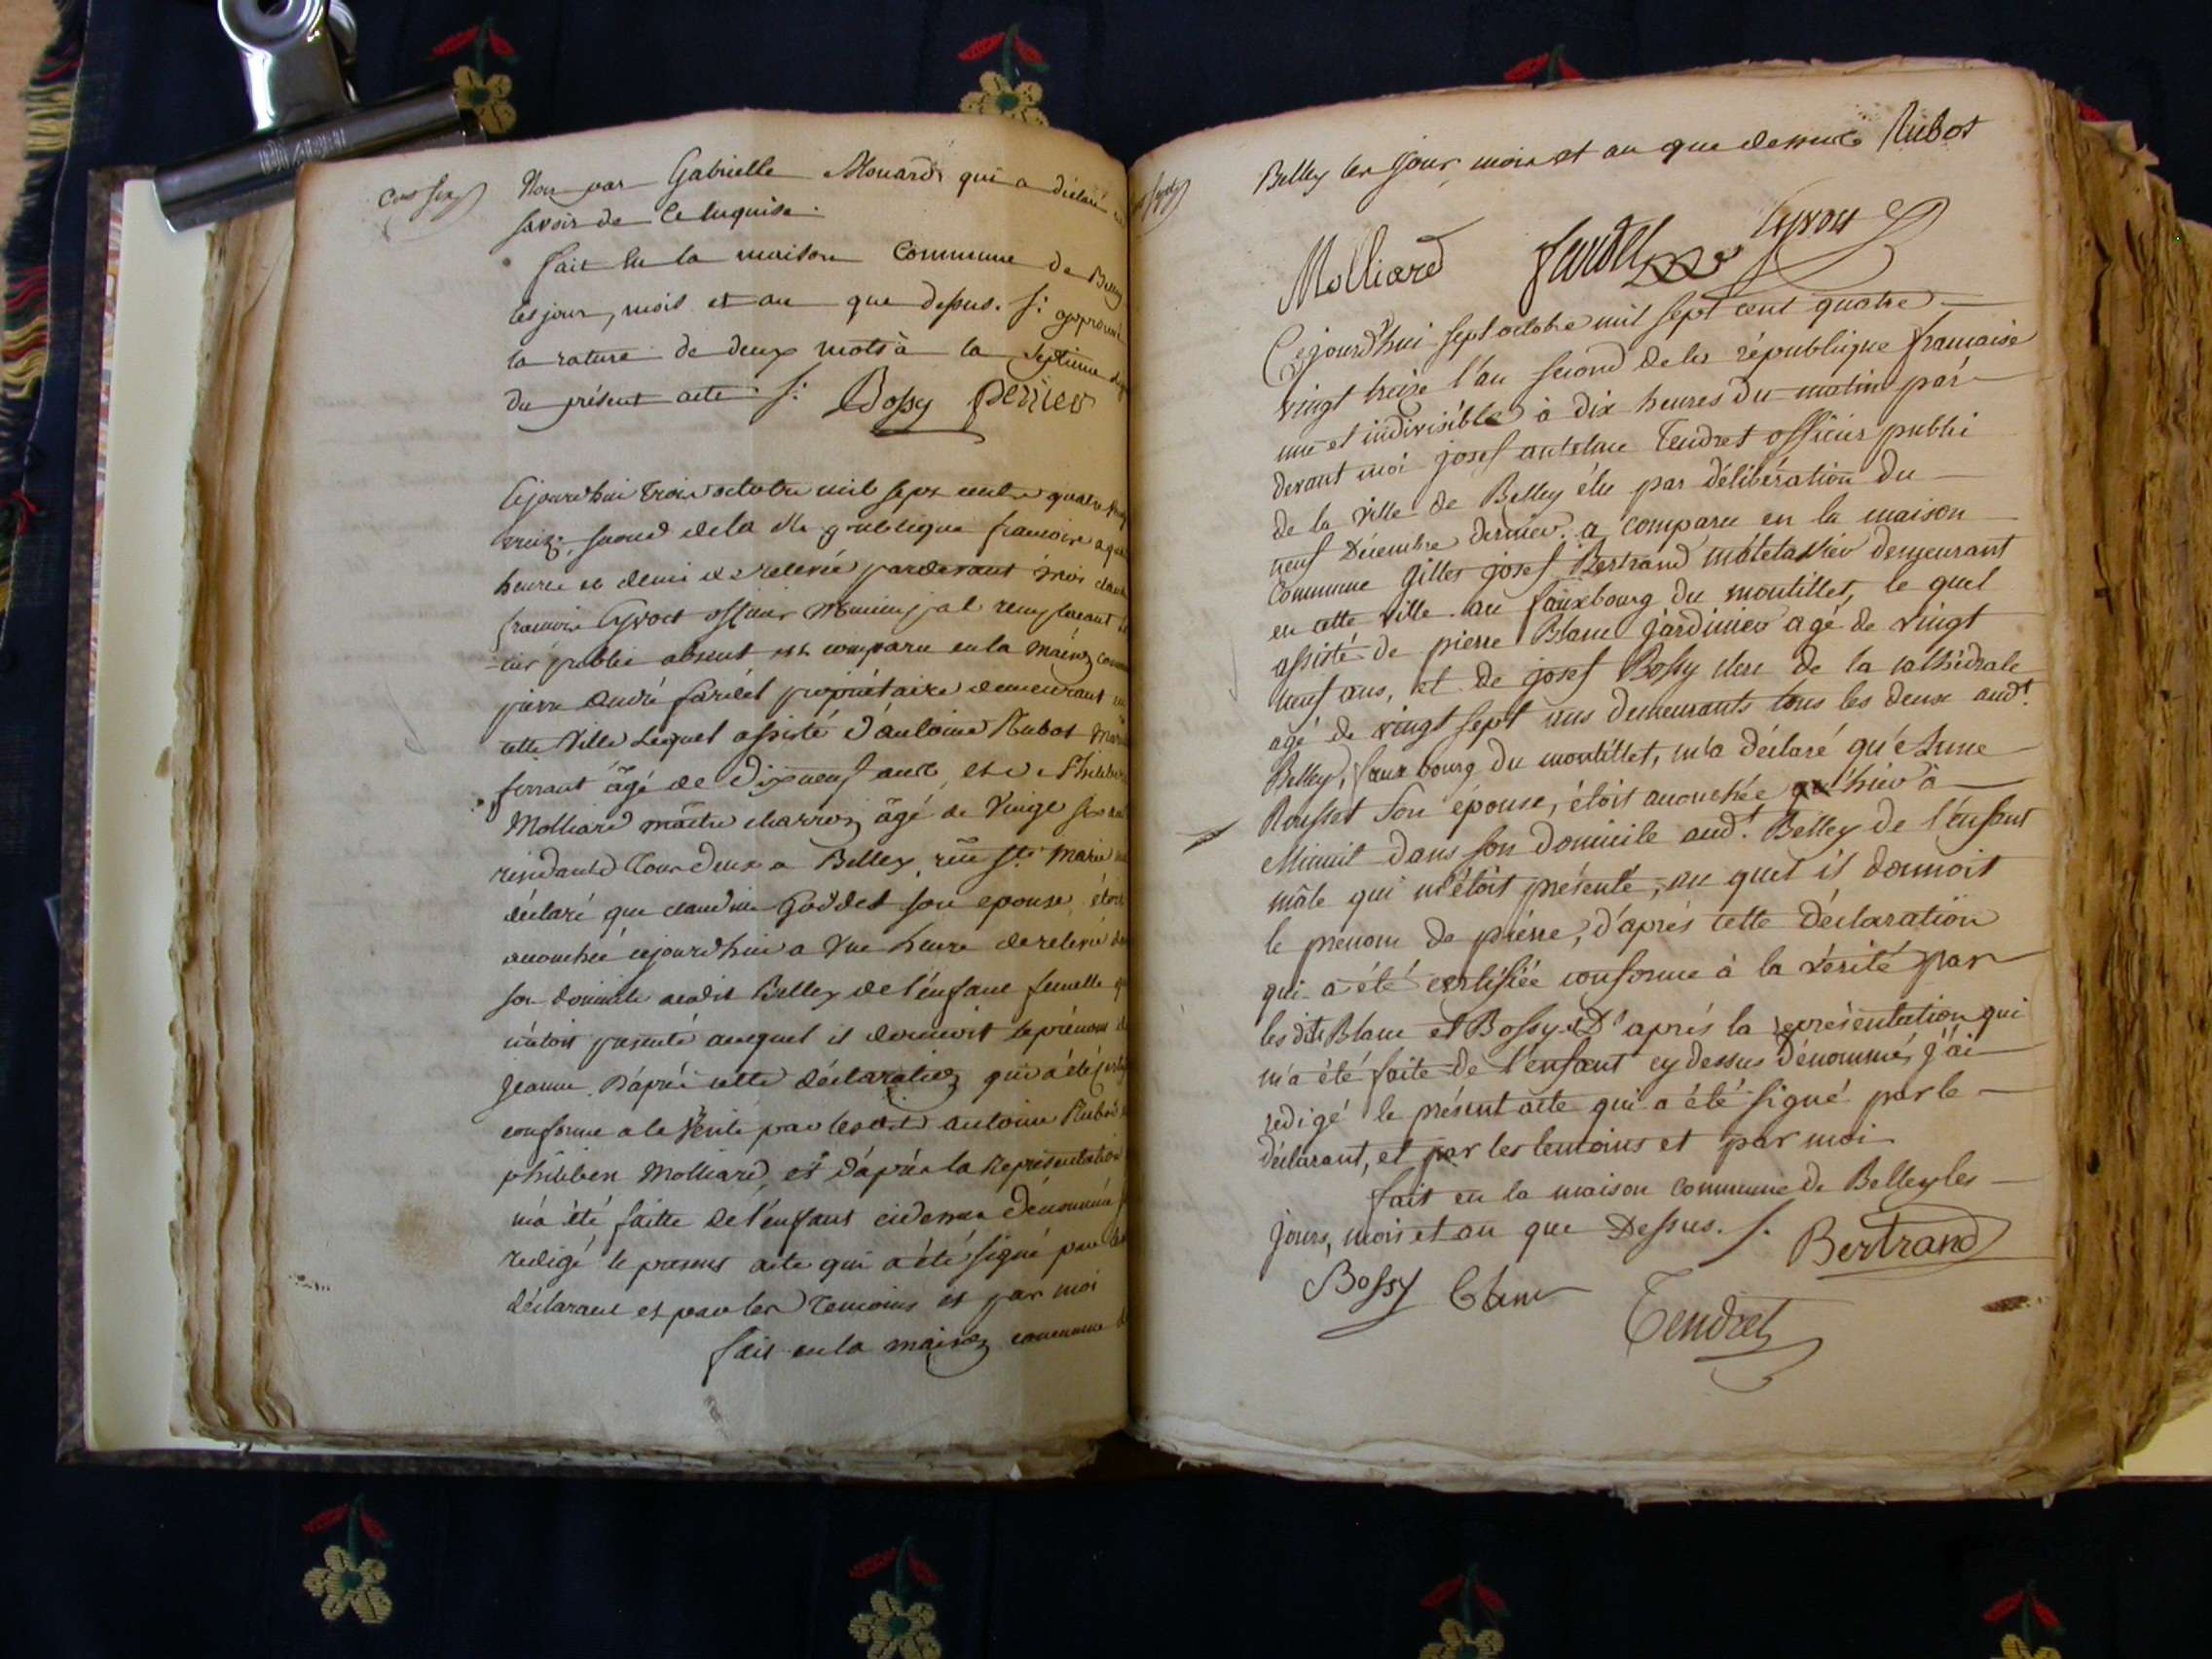 Cent six
Non par Gabrielle Mouard qui a déclaré ne
savoir de ce enquise.
fait en la maison Commune de Belley
les jour, mois et an que dessus. /: approuvé
la rature de deux mots à la septieme
du présent acte /: Bossy perrier
Cejourdhui trois octobre mil sept cents quatre vingt
treize, second de la République francoise a quatre
heures et demi de relevée pardevant moi claude
francois officier Municipal remplacant
-cier public absent est comparu en la maison comm
pierre andré fardet propriétaire demeurant en
cette Ville Lequel assisté d'antoine Rubot
ferrant âgé de Dixneuf ans, et de Philibert
Molliard maître charron âgé de Vingt six ans
résidants tous deux a Belley, rüe Ste Marie
déclaré que claudine Goddet son epouse, étoit
accouchée cejourdhui a Vne heure de relevée dans
son domicile audit Belley de l'enfant femelle qui
m'etoit presenté auquel il donnoit le prénom de
Jeanne. D'après cette Déclaration qui a été
conforme a la Vérité par lesdits antoine Rubot et
philibert Molliard, et d'après la Représentation
m'a été faitte de l'enfant cidessus dénommée
redigé le present acte qui a été signé par le
déclarant et par les temoins et par moi
fait en la maison commune de
Belley les jour, mois et an que dessus Rubot
Molliard fardet
Cejourd'hui sept octobre mil sept cent quatre
vingt treise l'an second de la république francaise
une et indivisible à dix heures du matin par
devant moi josef antelme Tendret officier public
de la Ville de Belley élu par délibération du
neuf Décembre dernier. a comparu en la maison
commune Gilles josef Bertrand demeurant
en cette ville au fauxbourg du moutillet, le quel
assisté de pierre Blanc jardinier agé de vingt
neuf ans, et de josef Bossy clerc de la cathédrale
agé de vingt sept ans demeurants tous les deux audt
Belley, faux bourg du moutillet, m'a déclaré qu'
Rousset son épouse, étoit accouchée hier à
Minuit dans son domicile audt Belley de l'enfant
mâle qui m'étoit présenté, au quel il donnoit
le prenom de pierre, d'après cette déclaration
qui a été certifiée conforme à la vérité par
les dits Blanc et Bossy et D'après la représentation qui
m'a été faite de l'enfant cy dessus dénommé, j'ai
redigé le présent acte qui a été signé par le
déclarant, et par les temoins et par moi
fait en la maison commune de Belley les
jours, mois et an que Dessus. /. Bertrand
Bossy Blanc Tendret